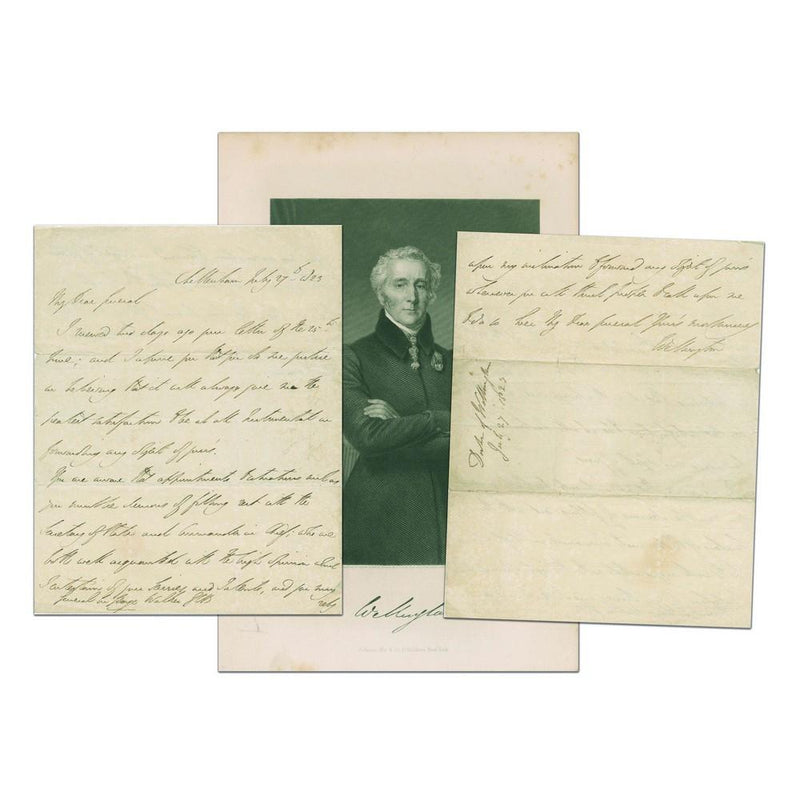 Cheltenham July 27th 1823
My Dear General
I received two days ago your letter of the 25th
and I assure you that you do me justice
in believing that it will always give me the
greatest satisfaction to be at all instrumental in
forwarding any object of yours.
You are aware that appointments to situations such as
you must be desirous of filling rest with the
Secretary of State and Commander in Chief; who are
both well acquainted with the high opinion which
I entertain of your Services and Talents, and you may
rely
General Sir George Walker GCB
upon my inclination to forward any object of yours
Whenever you will think proper to call upon me
My Dear General Yours most sincerely
Wellington
Duke of Wellington
July 27 1823
Wellington